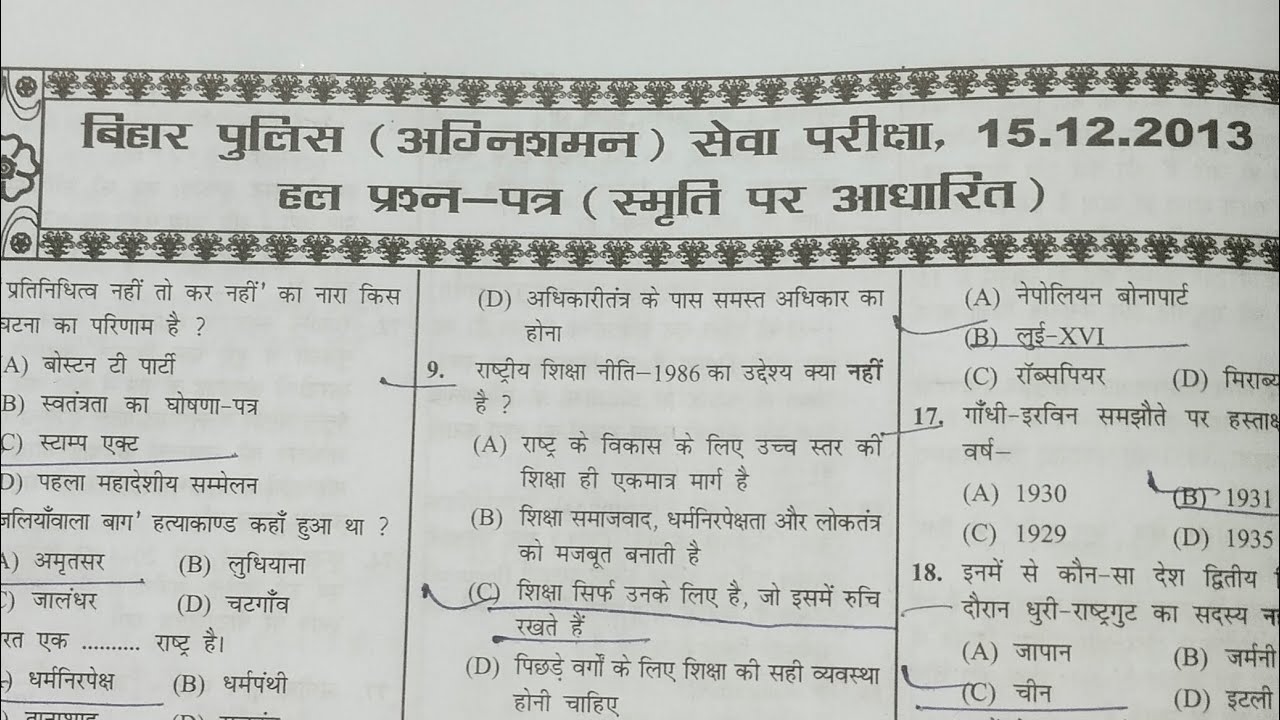 बिहार पुलिस (अग्निशमन) सेवा परीक्षा, 15.12.2013
हल प्रश्न–पत्र (स्मृति पर आधारित)
प्रतिनिधित्व नहीं तो कर नहीं' का नारा किस
घटना का परिणाम है ?
A) बोस्टन टी पार्टी
B) स्वतंत्रता का घोषणा-पत्र
C) स्टाम्प एक्ट
D) पहला महादेशीय सम्मेलन
जलियाँवाला बाग' हत्याकाण्ड कहाँ हुआ था ?
A) अमृतसर (B) लुधियाना
C) जालंधर (D) चटगाँव
एक .......... राष्ट्र है।
धर्मनिरपेक्ष (B) धर्मपंथी
(D) अधिकारीतंत्र के पास समस्त अधिकार का
होना
9. राष्ट्रीय शिक्षा नीति–1986 का उद्देश्य क्या नहीं
है ?
(A) राष्ट्र के विकास के लिए उच्च स्तर की
शिक्षा ही एकमात्र मार्ग है
(B) शिक्षा समाजवाद, धर्मनिरपेक्षता और लोकतंत्र
को मजबूत बनाती है
(C) शिक्षा सिर्फ उनके लिए है, जो इसमें रुचि
रखते हैं
(D) पिछड़े वर्गों के लिए शिक्षा की सही व्यवस्था
होनी चाहिए
(A) नेपोलियन बोनापार्ट
(B) लुई-XVI
(C) रॉब्सपियर (D) मिराब्य
17. गाँधी-इरविन समझौते पर हस्ताक्ष
वर्ष–
(A) 1930 (B) 1931
(C) 1929 (D) 1935
18. इनमें से कौन-सा देश द्वितीय
दौरान धुरी-राष्ट्रगुट का सदस्य
(A) जापान (B) जर्मनी
(C) चीन (D) इटली